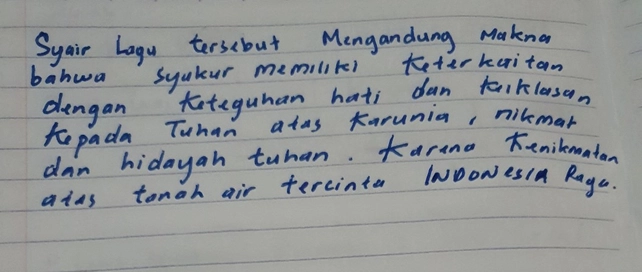 Syair Lagu tersebut Mengandung Makna
bahwa syukur memiliki keterkaitan
dengan keteguhan hati dan keiklasan
kepada Tuhan atas karunia, nikmat
dan hidayah tuhan. Karena kenikmatan
atas tanah air tercinta INDONESIA Raya.